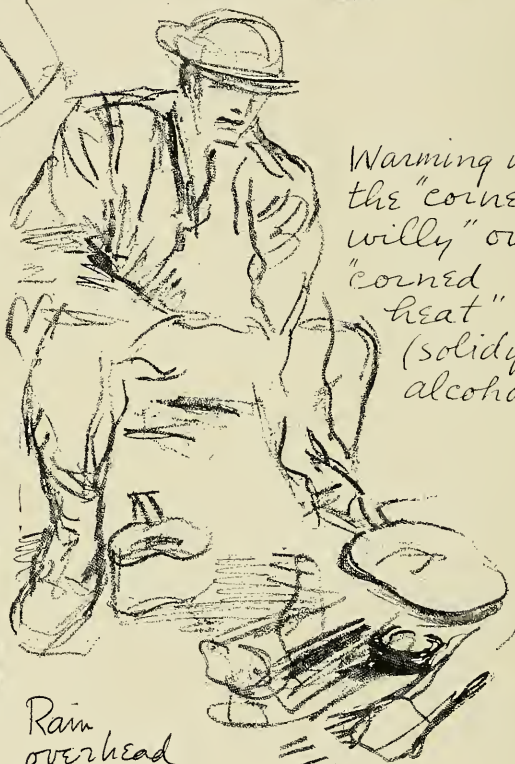 Warming u
the "corne
willy" ov
"corned
heat"
(solidy
alcoho
Rain
overhead